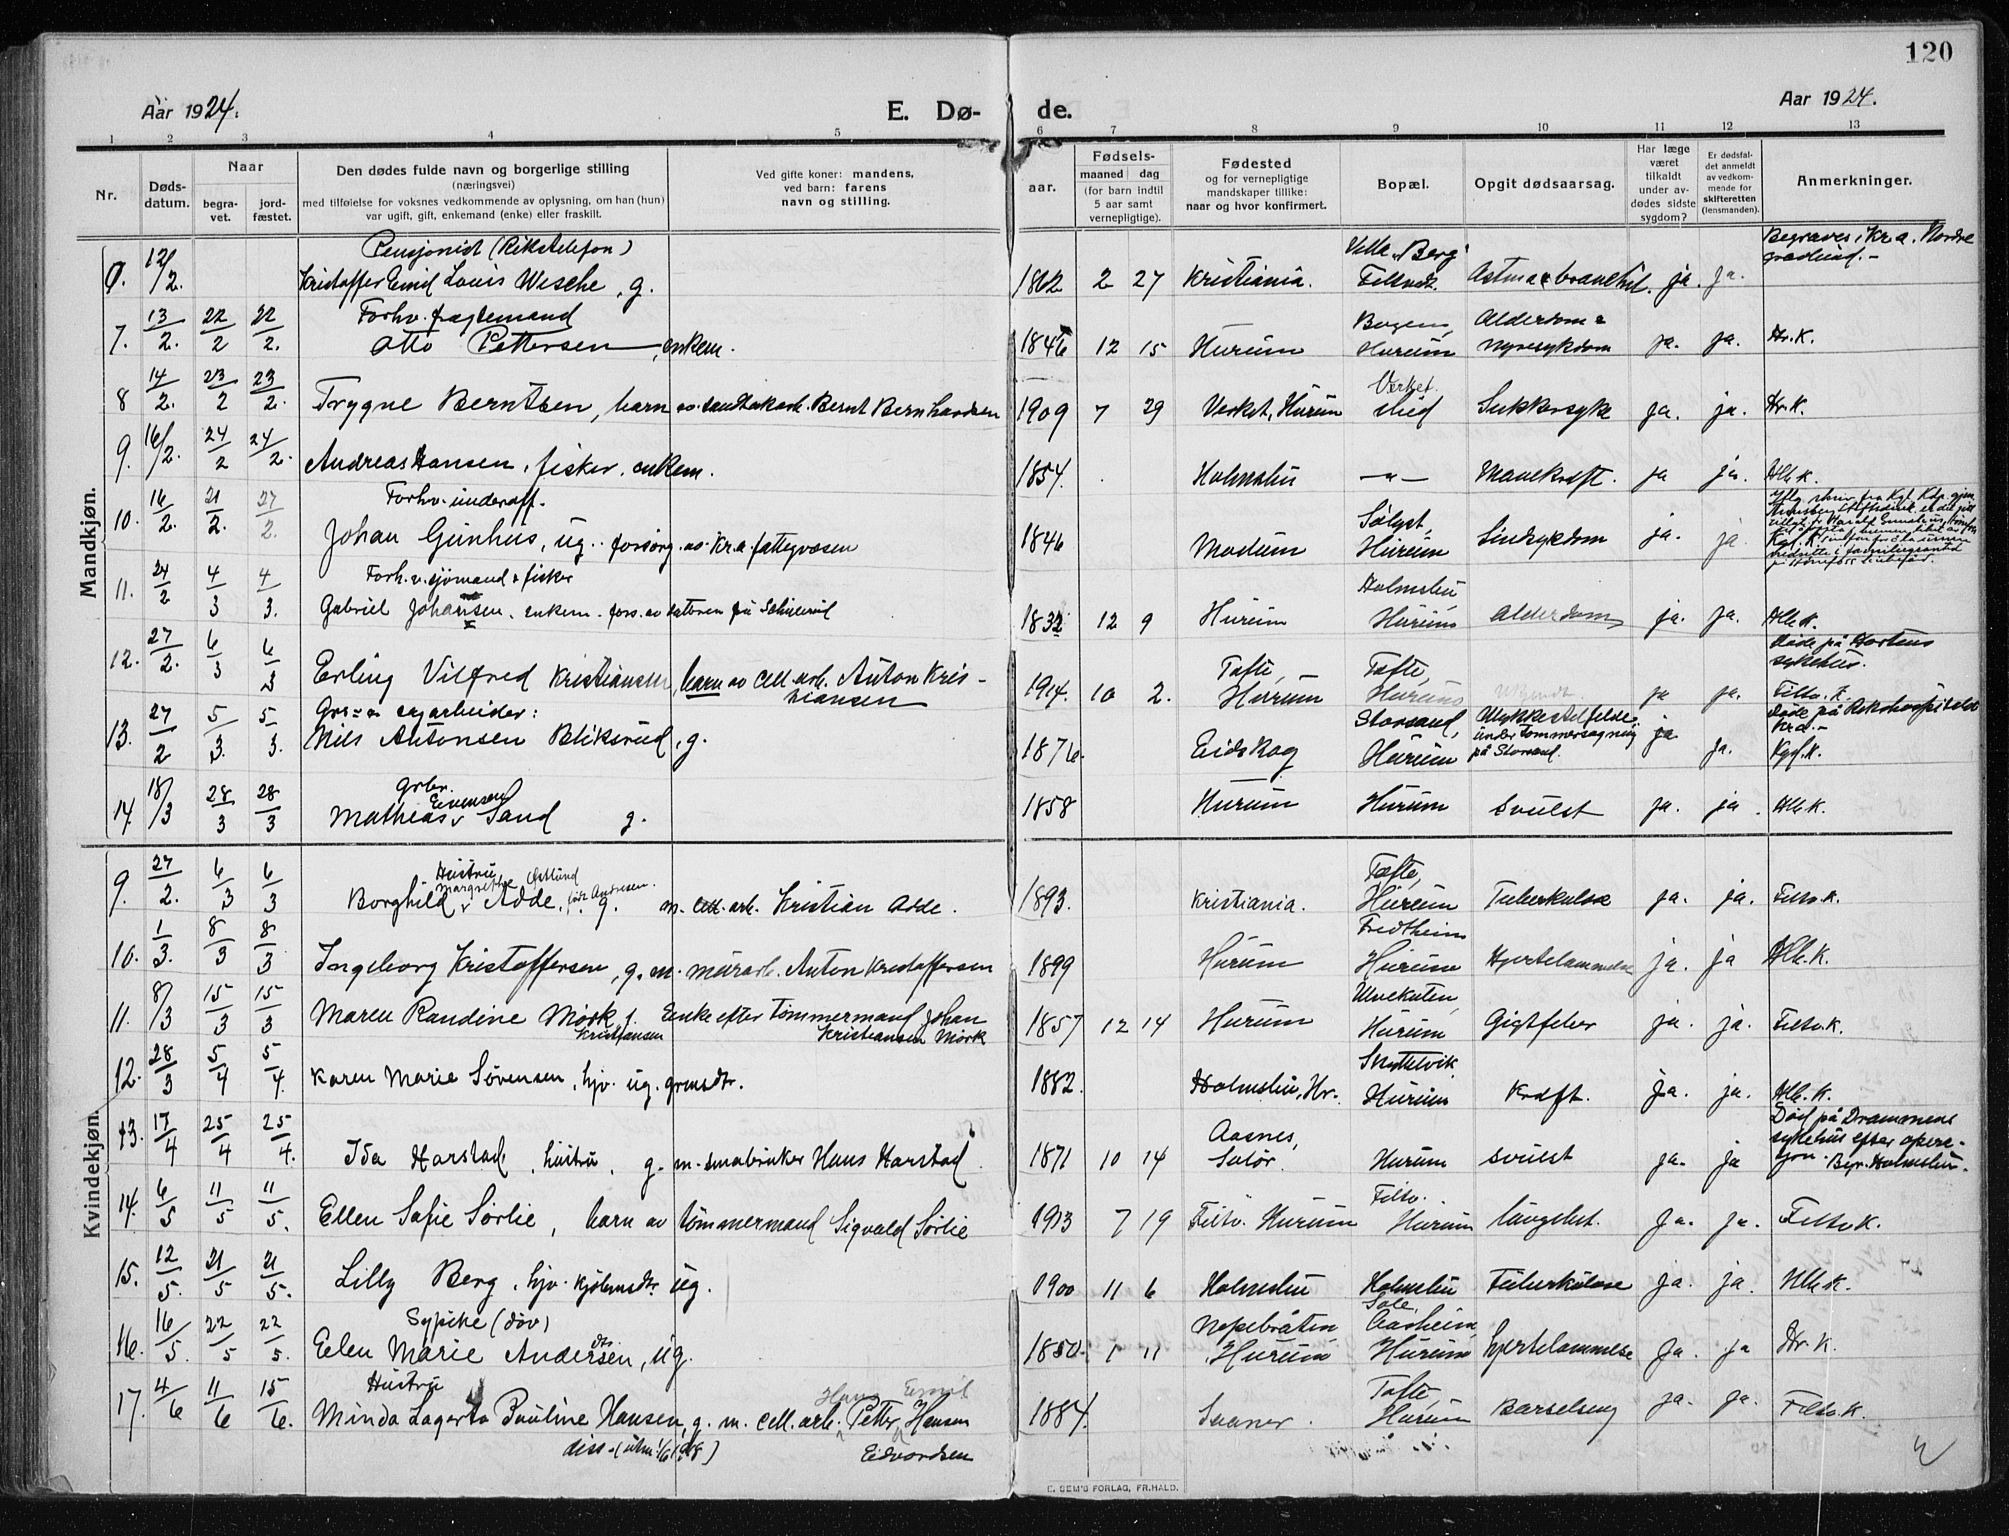 120
Aar 1924.
E. Dø-
de.
Aar 1924.
1 2 3 4 5 6 7 8 9 10 11 12 13
Nr.
Døds-
datum.
Naar
begra-
vet.
jord-
fæstet.
Den dødes fulde navn og borgerlige stilling
(næringsvei)
med tilføielse for voksnes vedkommende av oplysning, om han (hun)
var ugift, gift, enkemand (enke) eller fraskilt.
Ved gifte koner: mandens,
ved barn: farens
navn og stilling.
aar.
Fødsels-
maaned dag
(for barn indtil
5 aar samt
vernepligtige).
Fødested
og for vernepligtige
mandskaper tillike:
naar og hvor konfirmert.
Bopæl.
Opgit dødsaarsag.
Har læge
været
tilkaldt
under av-
dødes sidste
sygdom?
Er dødsfal-
det anmeldt
av vedkom-
mende for
skifteretten
(lensmanden).
Anmerkninger.
Mandkjøn.
Pensjonist (Rikstelefon)
12/2. Kristoffer Emil Louis Wesche, g. 1862 2 27 Kristiania. Filtvedt. ja. ja.
Begraves i Kr.a. Nordre
gravlund.-
Forhv. fragtemand
7. 13/2. 22/2 22/2. Otto Pettersen, enkem. 1846 12 15 Hurum Hurum nyresykdom ja. ja. Hr.K.
Alderdom &
8 14/2. 23/2 23/2. Trygve Berntsen, barn av Bernt Bernhardsen 1909 7 29 Verket, Hurum Verket. Sukkersyke ja. ja. Hr.K.
9. 16/2. 24/2 24/2. Andreas Hansen, fisker, enkem. 1854. Holmsbu -"- Mavekræft. ja ja. Hlb.K.
Forhv. underoff.
10. 16/2. 21/2. 27/2. Johan Gunhus, ug. forsørg. av Kr.a. fattigvæsen 1846 Modum Hurum Sindsykdom ja. ja
Forh.v. sjømand & fisker
11. 24/2 4/3 4/3. Gabriel Johansen, enkem. fors. av datteren 1832 12 9 Hurum Holmsbu, Hurum Alderdom ja. ja. Hlb.K.
12. 27/2. 6/3 6/3 Erling Vilfred Kristiansen, barn av cell.arb. Anton Kris-
tiansen 1914. 10 2. Tofte, Hurum Tofte, Hurum ja ja.
Døde på Hortens
sykehus.
Filtv.K.
13. 27/2 5/3. 5/3. Nils Antonsen Bliksrud, g. 1876. Eidskog Storsand, Hurum Ulykkestilfelde
under tømmersagning
på Storsand. ja ja.
Døde på Rikshospitalet
Kr.a.-
14. 18/3 28/3 28/3 Grbr. Mathias Evensen Sand g. 1858 Hurum Hurum Svulst ja. ja. Hlb.K.
Kvindekjøn.
9. 27/2. 6/3 6/3 Hustru Borghild Margrethe Adde, født Andresen. g. m. cell. arb. Kristian Adde. 1893. Kristiania. Tofte, Hurum Tuberkulose ja. ja. Filtv.K.
10. 1/3. 8/3 8/3 Ingeborg Kristoffersen, g. m. murarb. Anton Kristoffersen 1899 Hurum Fredheim Hurum Hjertelammelse ja. ja Hlb.K.
11. 8/3 15/3 15/3 Maren Randine Mørk f. Kristiansen Enke efter tømmermand Johan
Kristiansen Mørk 1857 12 14 Hurum Hurum Gigtfeber ja. ja. Filtv.K.
12. 28/3 5/4 5/4. Karen Marie Sørensen, hjv. ug. grmsdtr. 1882. Holmsbu, Hr. Hurum Kræft. ja. ja. Hlb.K.
13. 17/4 25/4 25/4. Ida Harstad, hustru, g. m. småbruker Hans Harstad 1871 10 14 Aasnes, Solør. Hurum Svulst ja. ja
Død på Drammens
sykehus efter opera-
sjon. Begr. Holmsbu.
14. 6/5 11/5 11/5. Ellen Sofie Sørlie, barn av tømmermand Sigvald Sørlie 1913 7 19 Filtv. Hurum Filtv. Hurum lungebet. ja. ja. Filtv.K.
15. 12/5. 21/5 21/5. Lilly Berg, hjv. kjøbmsdtr. ug. 1900 11 6 Holmsbu Holmsbu Tuberkulose ja. ja. Hlb.K.
Sypike (døv)
16. 16/5. 22/5 22/5. Ellen Marie Andersen, ug. 1850. 1 11 Nepebråten, Hurum Hurum hjertelammelse ja. ja Hr.K.
Hustru
17. 4/6 11/6 15/6. Minda Lagerta Pauline Hansen, g. m. cell. arb. Petter Hansen 1884. Saaner. Tofte, Hurum Barselseng ja. ja. Filtv.K.
Hans Emil
Edvardsen
E. SEM'S FORLAG, FR.HALD.